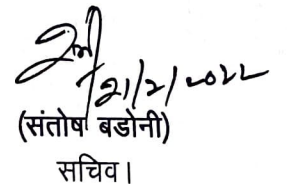 21/2/2022
(संतोष बडोनी)
सचिव।